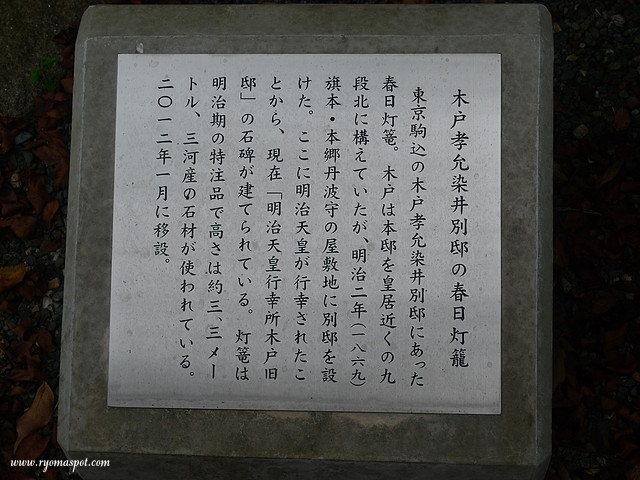 木戸孝允染井別邸の春日灯籠
東京駒込の木戸孝允染井別邸にあった
春日灯篭。木戸は本邸を皇居近くの九
段北に構えていたが、明治二年(一八六九)
旗本・本郷丹波守の屋敷地に別邸を設
けた。ここに明治天皇が行幸されたこ
とから、現在「明治天皇行幸所木戸旧
邸」の石碑が建てられている。灯篭は
明治期の特注品で高さは約三、三メー
トル、三河産の石材が使われている。
二〇一二年一月に移設。
www.ryomaspot.com